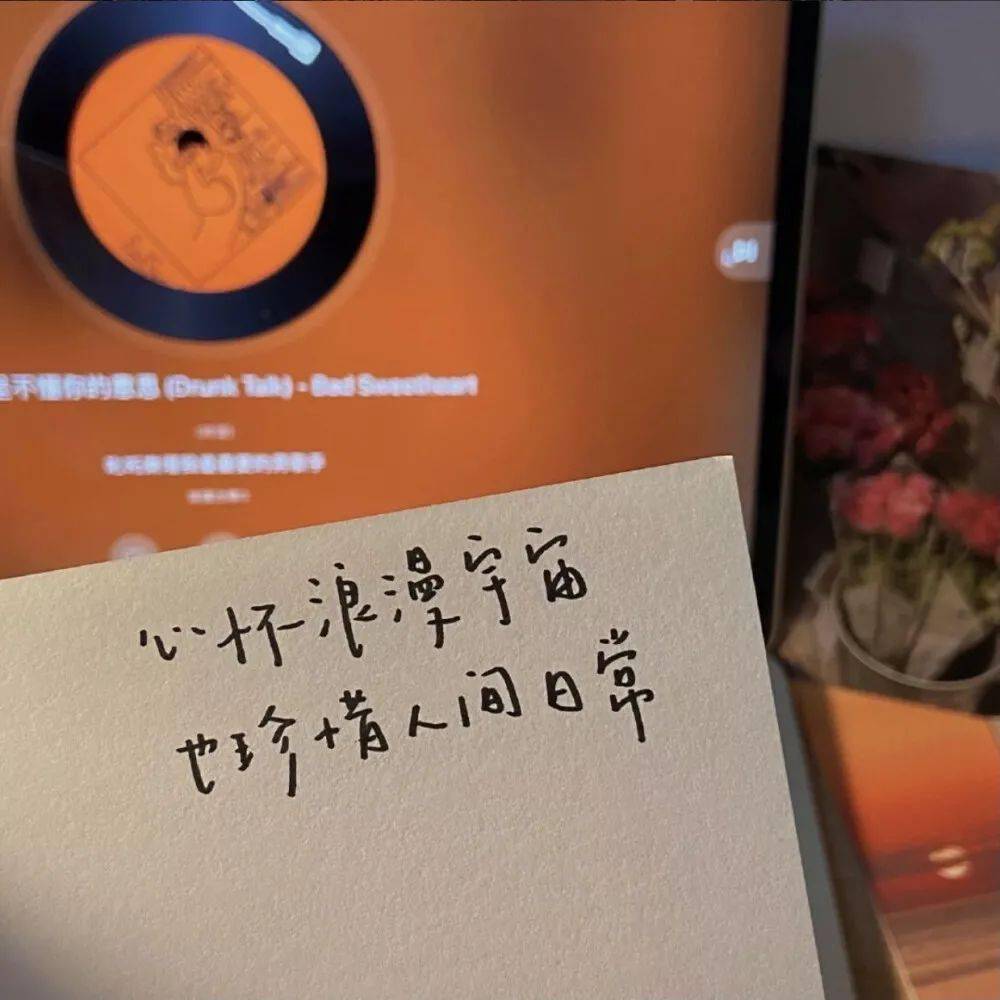 不懂你的意思 (Drunk Talk) - Bad Sweetheart
心怀浪漫宇宙
也珍惜人间日常